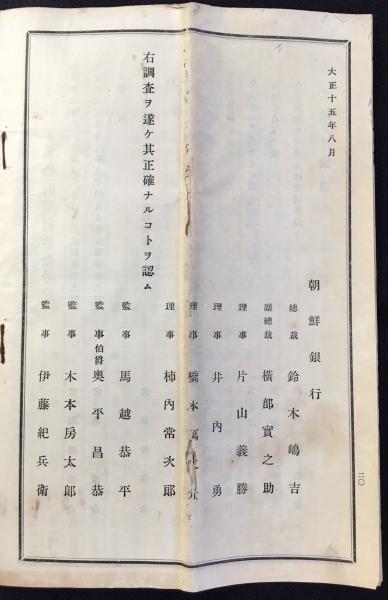 大正十五年八月
朝鮮銀行
總裁 鈴木嶋吉
副總裁 橫部實之助
理事 片山義勝
理事 井內勇
理事 橋本
理事 柿內常次郎
右調査ヲ遂ケ其正確ナルコトヲ認ム
監事 馬越恭平
監事 伯爵 奧平昌恭
監事 木本房太郎
監事 伊藤紀兵衛
二〇